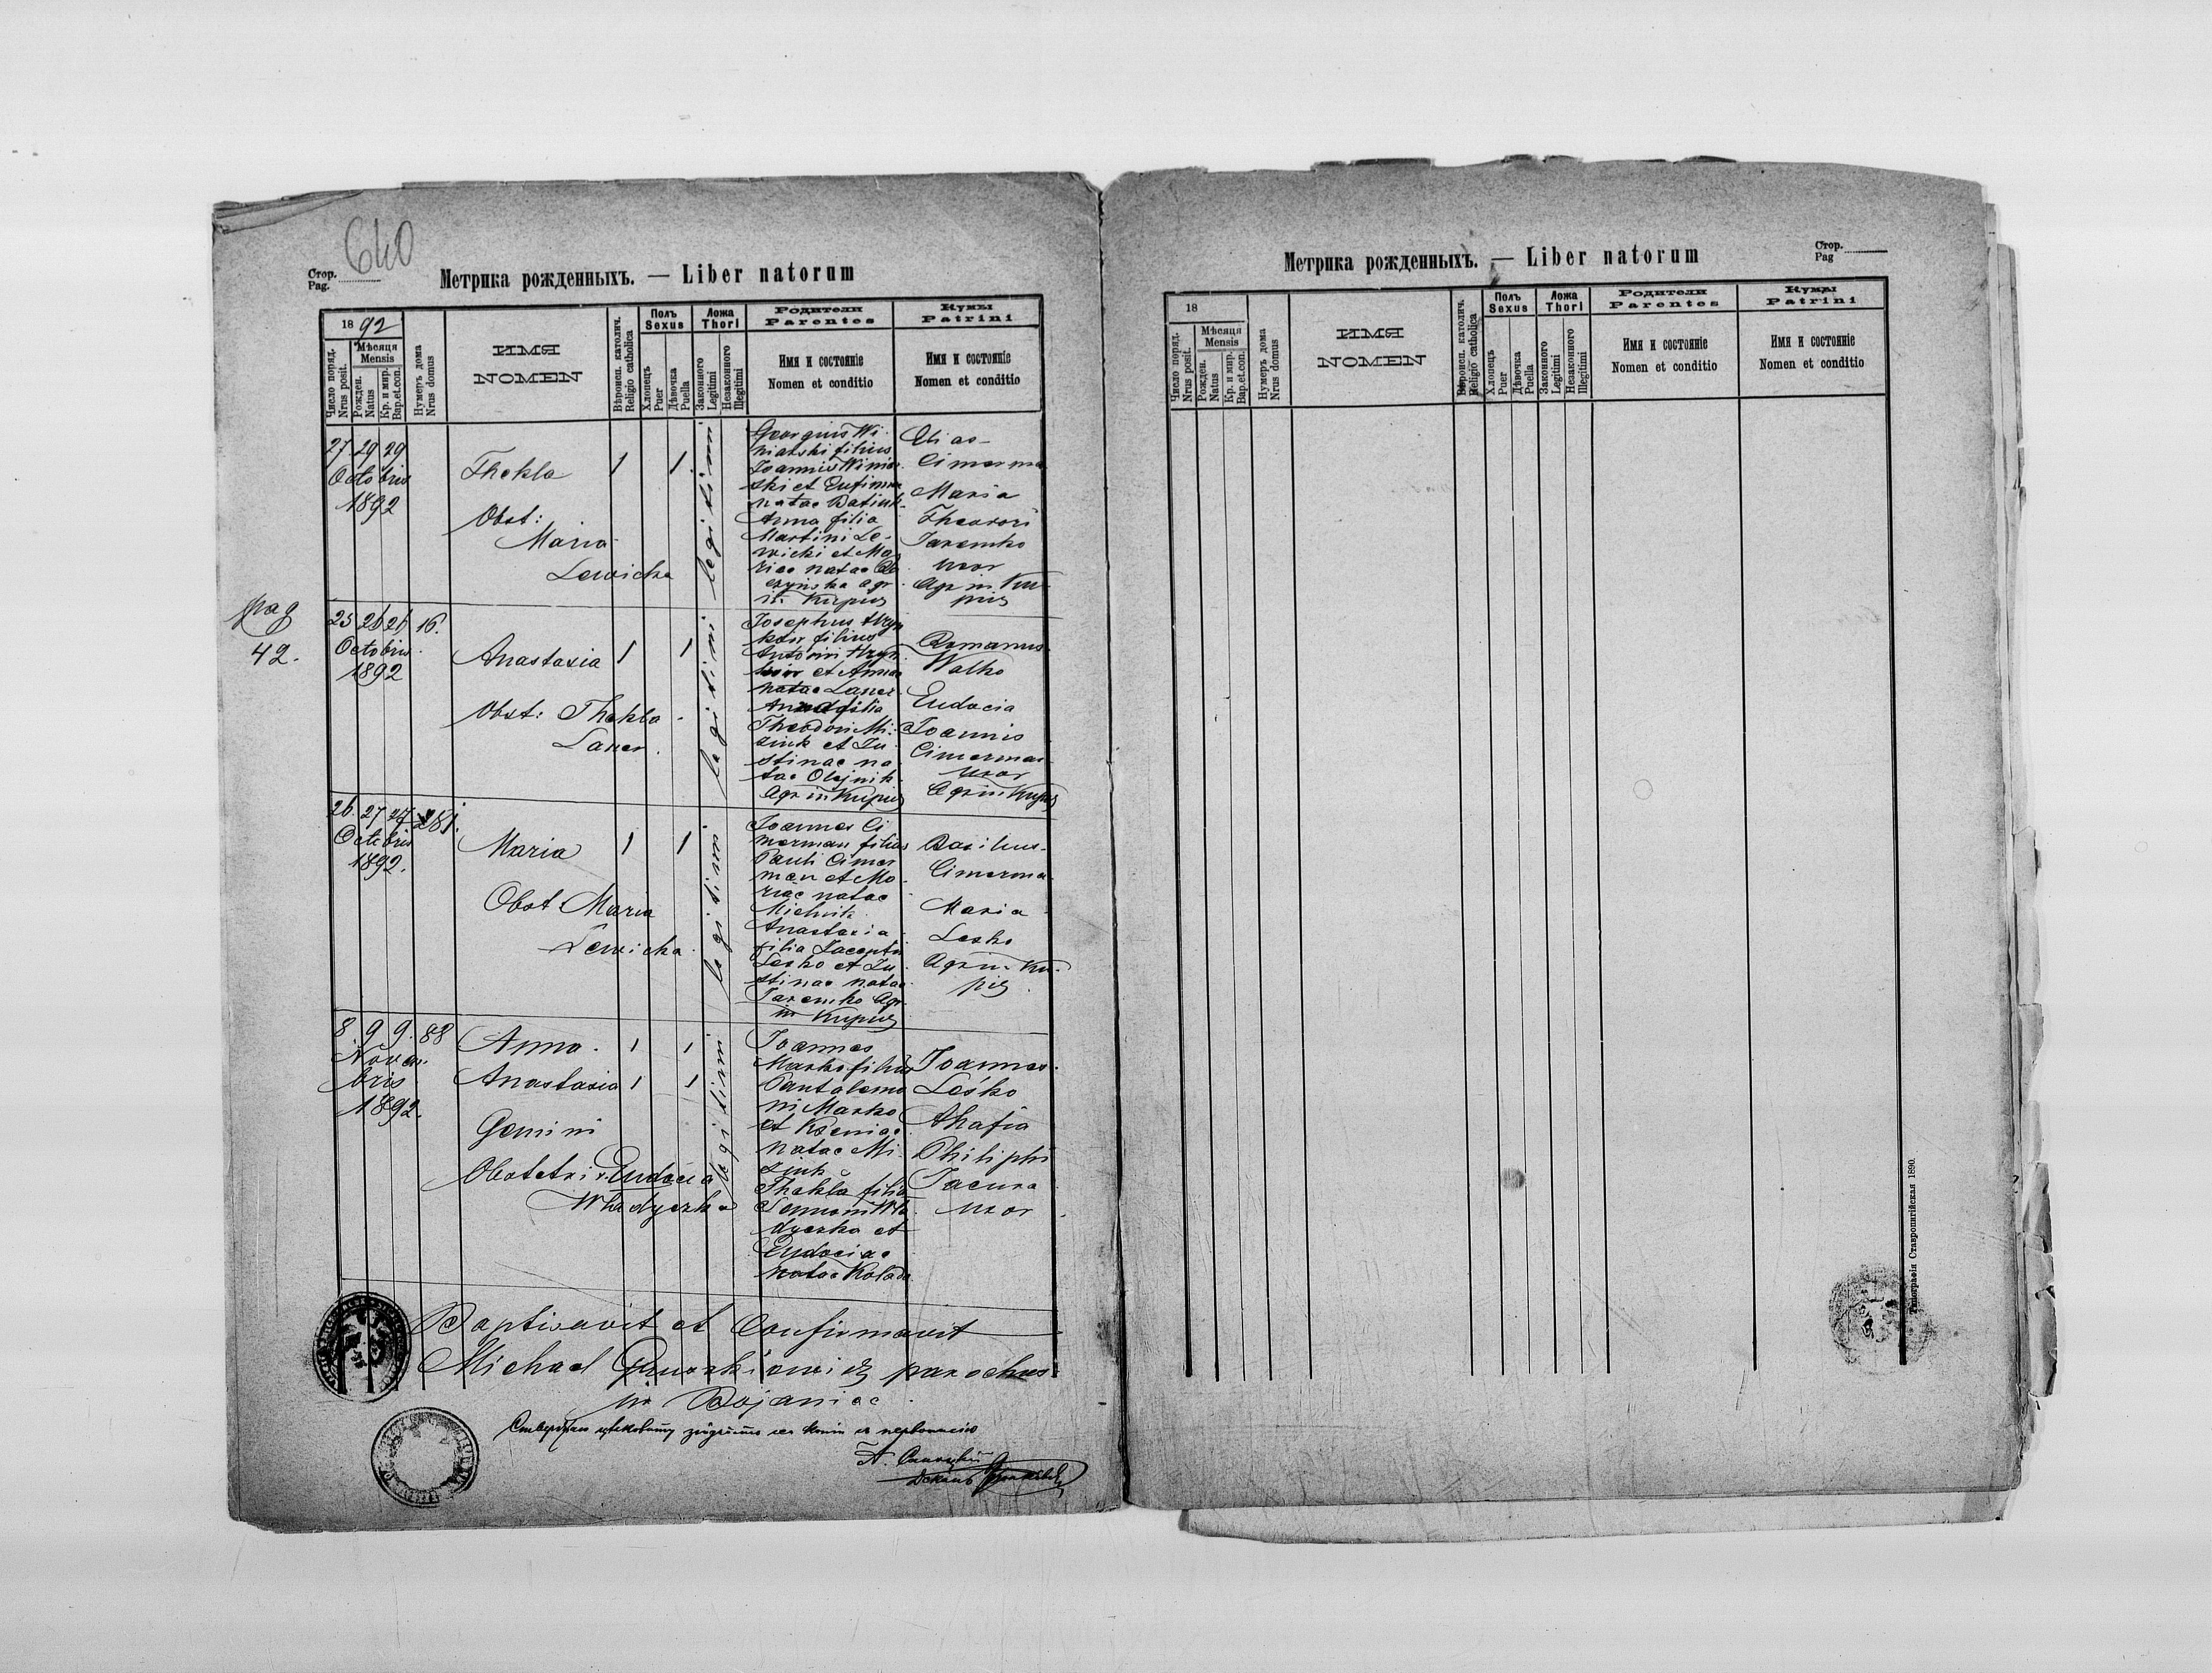 640
Стор.
Pag.
Метрика рожденныхъ. — Liber natorum
1892
Число поряд.
Nrus posit.
Мѣсяця
Mensis
Рожден.
Natus
Кр. и мир.
Bap.et.con.
Нумеръ дома
Nrus domus
ИМЯ
NOMEN
Вѣроисп. католич.
Religio catholica
Полъ
Sexus
Хлопецъ
Puer
Дѣвочка
Puella
Ложа
Thori
Законного
Legitimi
Незаконного
Illegitimi
Родители
Parentes
Имя и состояніе
Nomen et conditio
Кумы
Patrini
Имя и состояніе
Nomen et conditio
27 29 29
Octobris
1892
Thekla
1 1
Obst:
Maria
Lewicka
legitimi
Georgius Wi
niarski filius
Joannis Winiar
ski et Eufimia
natae
Anna filia
Martini Le-
wicki et Ma
riae natae
agr
in Kupicz
Elias
Cimerma
Maria
Theodori
Jaremko
uxor
Agr in Ku
picz
pag
42.
25 26 26 16.
Octobris
1892
Anastasia
1 1
Obst: Thekla
Laner.
legitimi
Josephus Hryn
kow filius
Antonii Hryn
kow et Annae
natae Laner
Anna filia
Theodori Mi
ziuk et Ju
stinae na
tae Olejnik
Agr in Kupicz
Romanus
Walko
Eudocia
Joannis
Cimerman
uxor
Agr in Kupicz
26. 27 27 281.
Octobris
1892.
Maria
1 1
Obst Maria
Lewicka.
legitimi
Joannes Ci
merman filius
Pauli Cimer
man et Ma
riae natae
Michnik
Anastasia
filia
Lesko et Ju
stinae natae
Jaremko Agr
in Kupicz
Basilius
Cimerma
Maria
Lesko
Agr in Ku
picz
8. 9 9. 88
Novem
bris
1892.
Anna.
1 1
Anastasia
1 1
Gemini
Obstetrix Eudocia
Wladyczka
legitimi
Joannes
Marko filius
Pantalemo
ni Marko
et Kseniae
natae Mi
ziuk
Thekla filia
Semioni Wla
dyczka et
Eudociae
natae Kolada
Joannes
Leśko
Ahafia
Philiphi
Jacura
uxor
Baptisavit et Confirmavit
Michael parochus
in Bojaniec
Метрика рожденныхъ. — Liber natorum
Стор.
Pag
18
Число поряд.
Nrus posit.
Мѣсяця
Mensis
Рожден.
Natus
Кр. и мир.
Bap.et.con.
Нумеръ дома
Nrus domus
ИМЯ
NOMEN
Вѣроисп. католич.
Religio catholica
Полъ
Sexus
Хлопецъ
Puer
Дѣвочка
Puella
Ложа
Thori
Законного
Legitimi
Незаконного
Illegitimi
Родители
Parentes
Имя и состояніе
Nomen et conditio
Кумы
Patrini
Имя и состояніе
Nomen et conditio
Типографія Ставропигійская 1890.